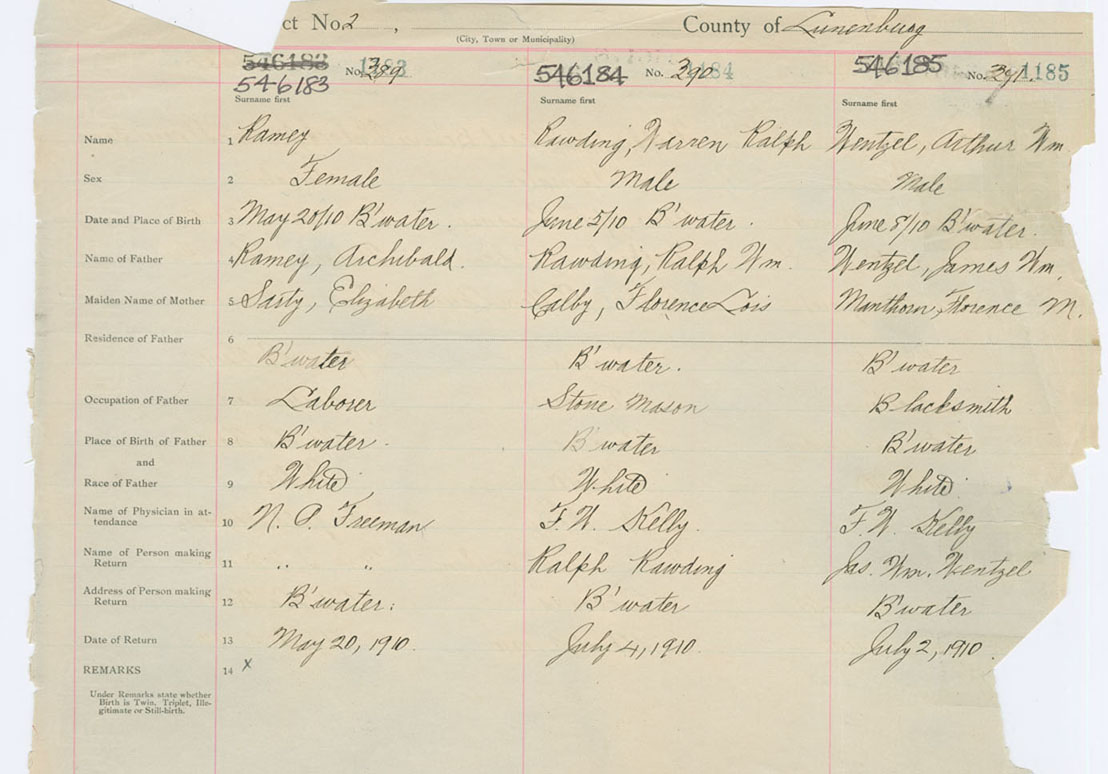 ct No. 2 , County of Lunenburg
(City, Town or Municipality)
546183 546184 546185
546183 No. 289 1183 No. 290 1184 No. 291 1185
Surname first Surname first Surname first
Name 1 Ramey Rawding, Warren Ralph Wentzel, Arthur Wm.
Sex 2 Female Male Male
Date and Place of Birth 3 May 20/10 B'water. June 5/10 B'water. June 8/10 B'water.
Name of Father 4 Ramey, Archibald. Rawding, Ralph Wm. Wentzel, James Wm.
Maiden Name of Mother 5 Elizabeth Colby, Florence Lois Manthorn, Florence M.
Residence of Father 6
B'water B'water. B'water
Occupation of Father 7 Laborer Stone Mason Blacksmith
Place of Birth of Father 8 B'water. B'water B'water
and
Race of Father 9 White White White
Name of Physician in at-
tendance 10 N. P. Freeman F. W. Kelly. F. W. Kelly
Name of Person making
Return 11 " " Ralph Rawding Jas. Wm. Wentzel
Address of Person making
Return 12 B'water: B'water B'water
Date of Return 13 May 20, 1910. July 4, 1910. July 2, 1910.
REMARKS 14 x
Under Remarks state whether
Birth is Twin, Triplet, Ille-
gitimate or Still-birth.